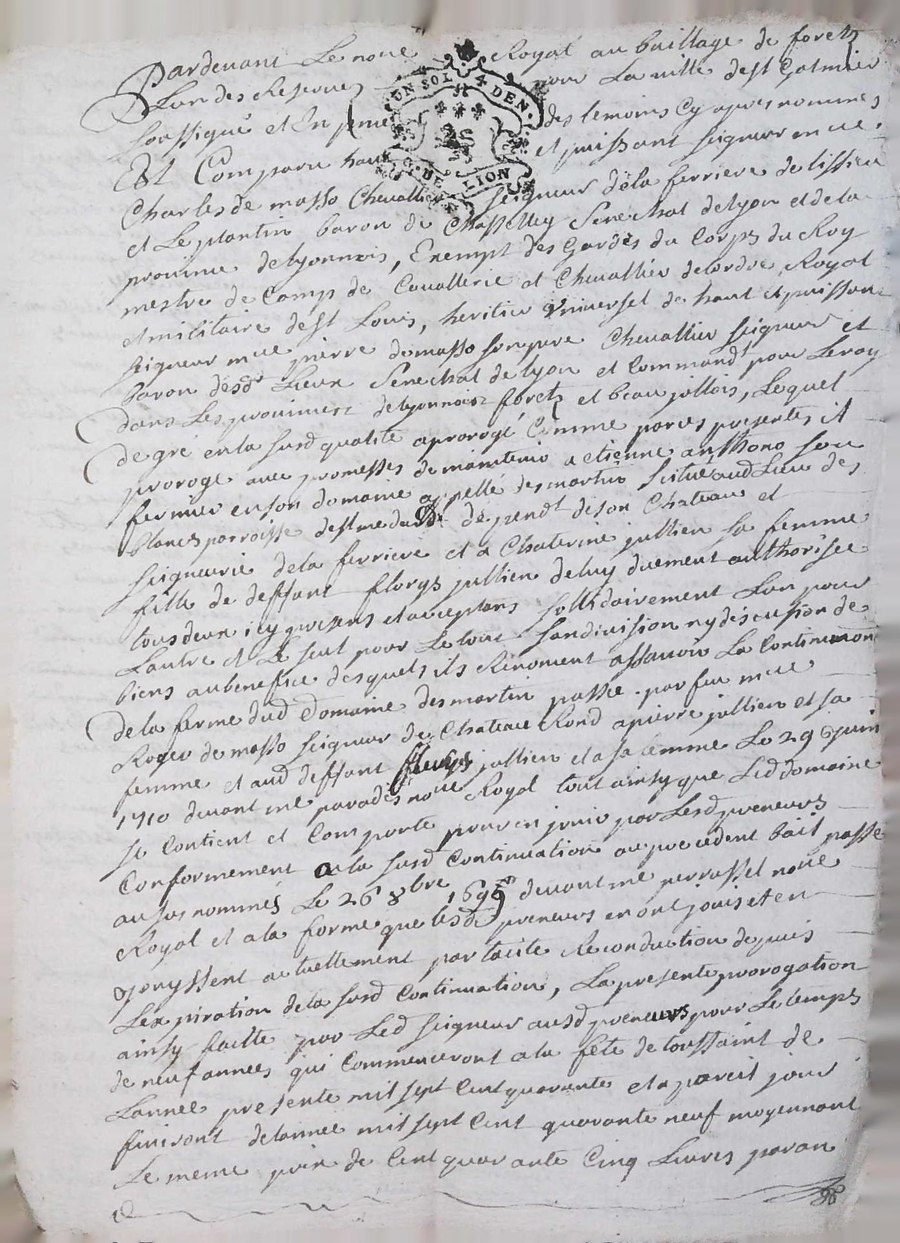 Pardevant Le nore Royal au bailliage de foretz
Lun des Reservés pour La ville de st Galmier
UN SOL 4 DEN.
G. DE LION
soussigné et En presence des temoins Cy apres nommes
Est Comparu haut et puissant seigneur mre
Charles de masso Chevallier seigneur de la ferriere de lissieu
et Le plantin baron de Chasselley Senechal de lyon et de la
province de lyonnois, Exempt des Gardes du Corps du Roy
mestre de Camp de Cavallerie et Chevallier de lordre Royal
et militaire de st Louis, heritier Universel de haut et puissant
seigneur mre pierre de masso son pere Chevallier seigneur et
baron desd. Lieux Senechal de lyon et Commandt pour Le roy
dans Les provinces de lyonnois foretz et beaujollois, Lequel
de gré en la susd qualité a prorogé Comme par ces presentes il
proroge avec promesses de maintenir a etienne anthono son
fermier en son domaine appellé des martin situé aud Lieu des
blancs parroisse de st medard dependt de son Chateau et
seigneurie de la ferriere et a Chaterine jullien sa femme
fille de deffunt florys jullien de luy duement authorisée
tous deux icy presens et acceptans sollidairement Lun pour
Lautre et Le seul pour Le tout sans division ny discussion de
biens au benefice desquels ils Renoncent assavoir La Continuation
de la ferme dud Domaine des martin passée par feu mre
Roger de masso seigneur de Chateau Rond a pierre jullien et sa
femme et aud deffunt fleurys jullien et a sa femme Le 29 juin
1710 devant me paradés nore Royal tout ainsy que Led domaine
se Contient et Comporte pour en jouir par Lesd preneurs
Conformement a la susd Continuation au precedent bail passé
au sus nommés Le 26 8bre devant me perrasset nore
Royal et a la forme que lesd preneurs en ont jouis et en
jouyssent actuellement par tacite Reconduction depuis
Lexpiration de la susd Continuation, La presente prorogation
ainsy faitte par Led seigneur ausd preneurs pour Le temps
de neuf années qui Commenceront a la fête de toussaint de
Lannée presente mil sept Cent quarante et a pareil jour
finiront de lannée mil sept Cent quarante neuf moyennant
Le meme prix de Cent quarante Cinq Livres par an